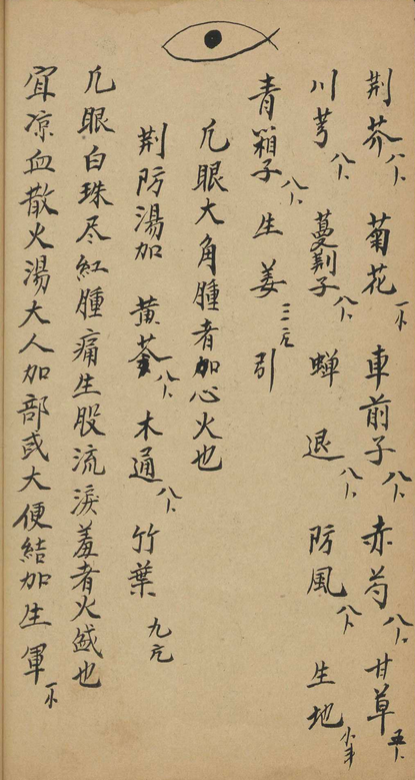 荆芥八卜 菊花 車前子八卜 赤芍八卜 甘草五卜
川芎八卜 蔓荆子八卜 蝉退八卜 防風八卜 生地
青箱子八卜 生姜三 引
凢眼大角腫者加心火也
荆防湯加 黄芩八卜 木通八卜 竹葉九
凢眼白珠尽紅腫痛生股流淚羞者火盛也
宜凉血散火湯大人加部或大便結加生軍